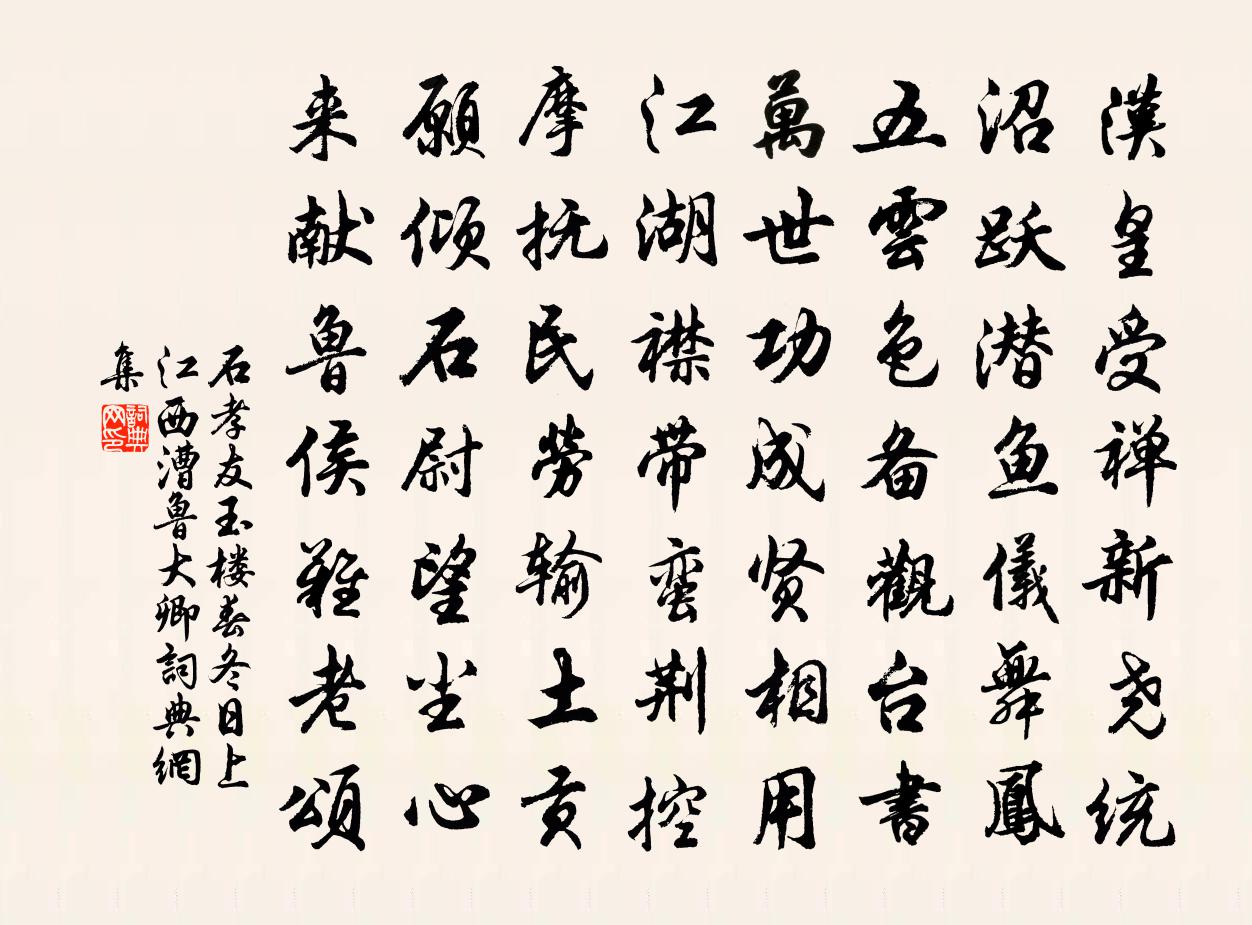 漢皇受禅新尧统
沼跃潜鱼儀舞鳳
五雲色备觀台書
萬世功成贤相用
江湖襟带蛮荆控
摩抚民劳输土贡
願倾石尉望尘心
来献鲁侯難老頌
石孝友玉楼春冬日上
江西漕鲁大卿詞典網
集
詞典网印